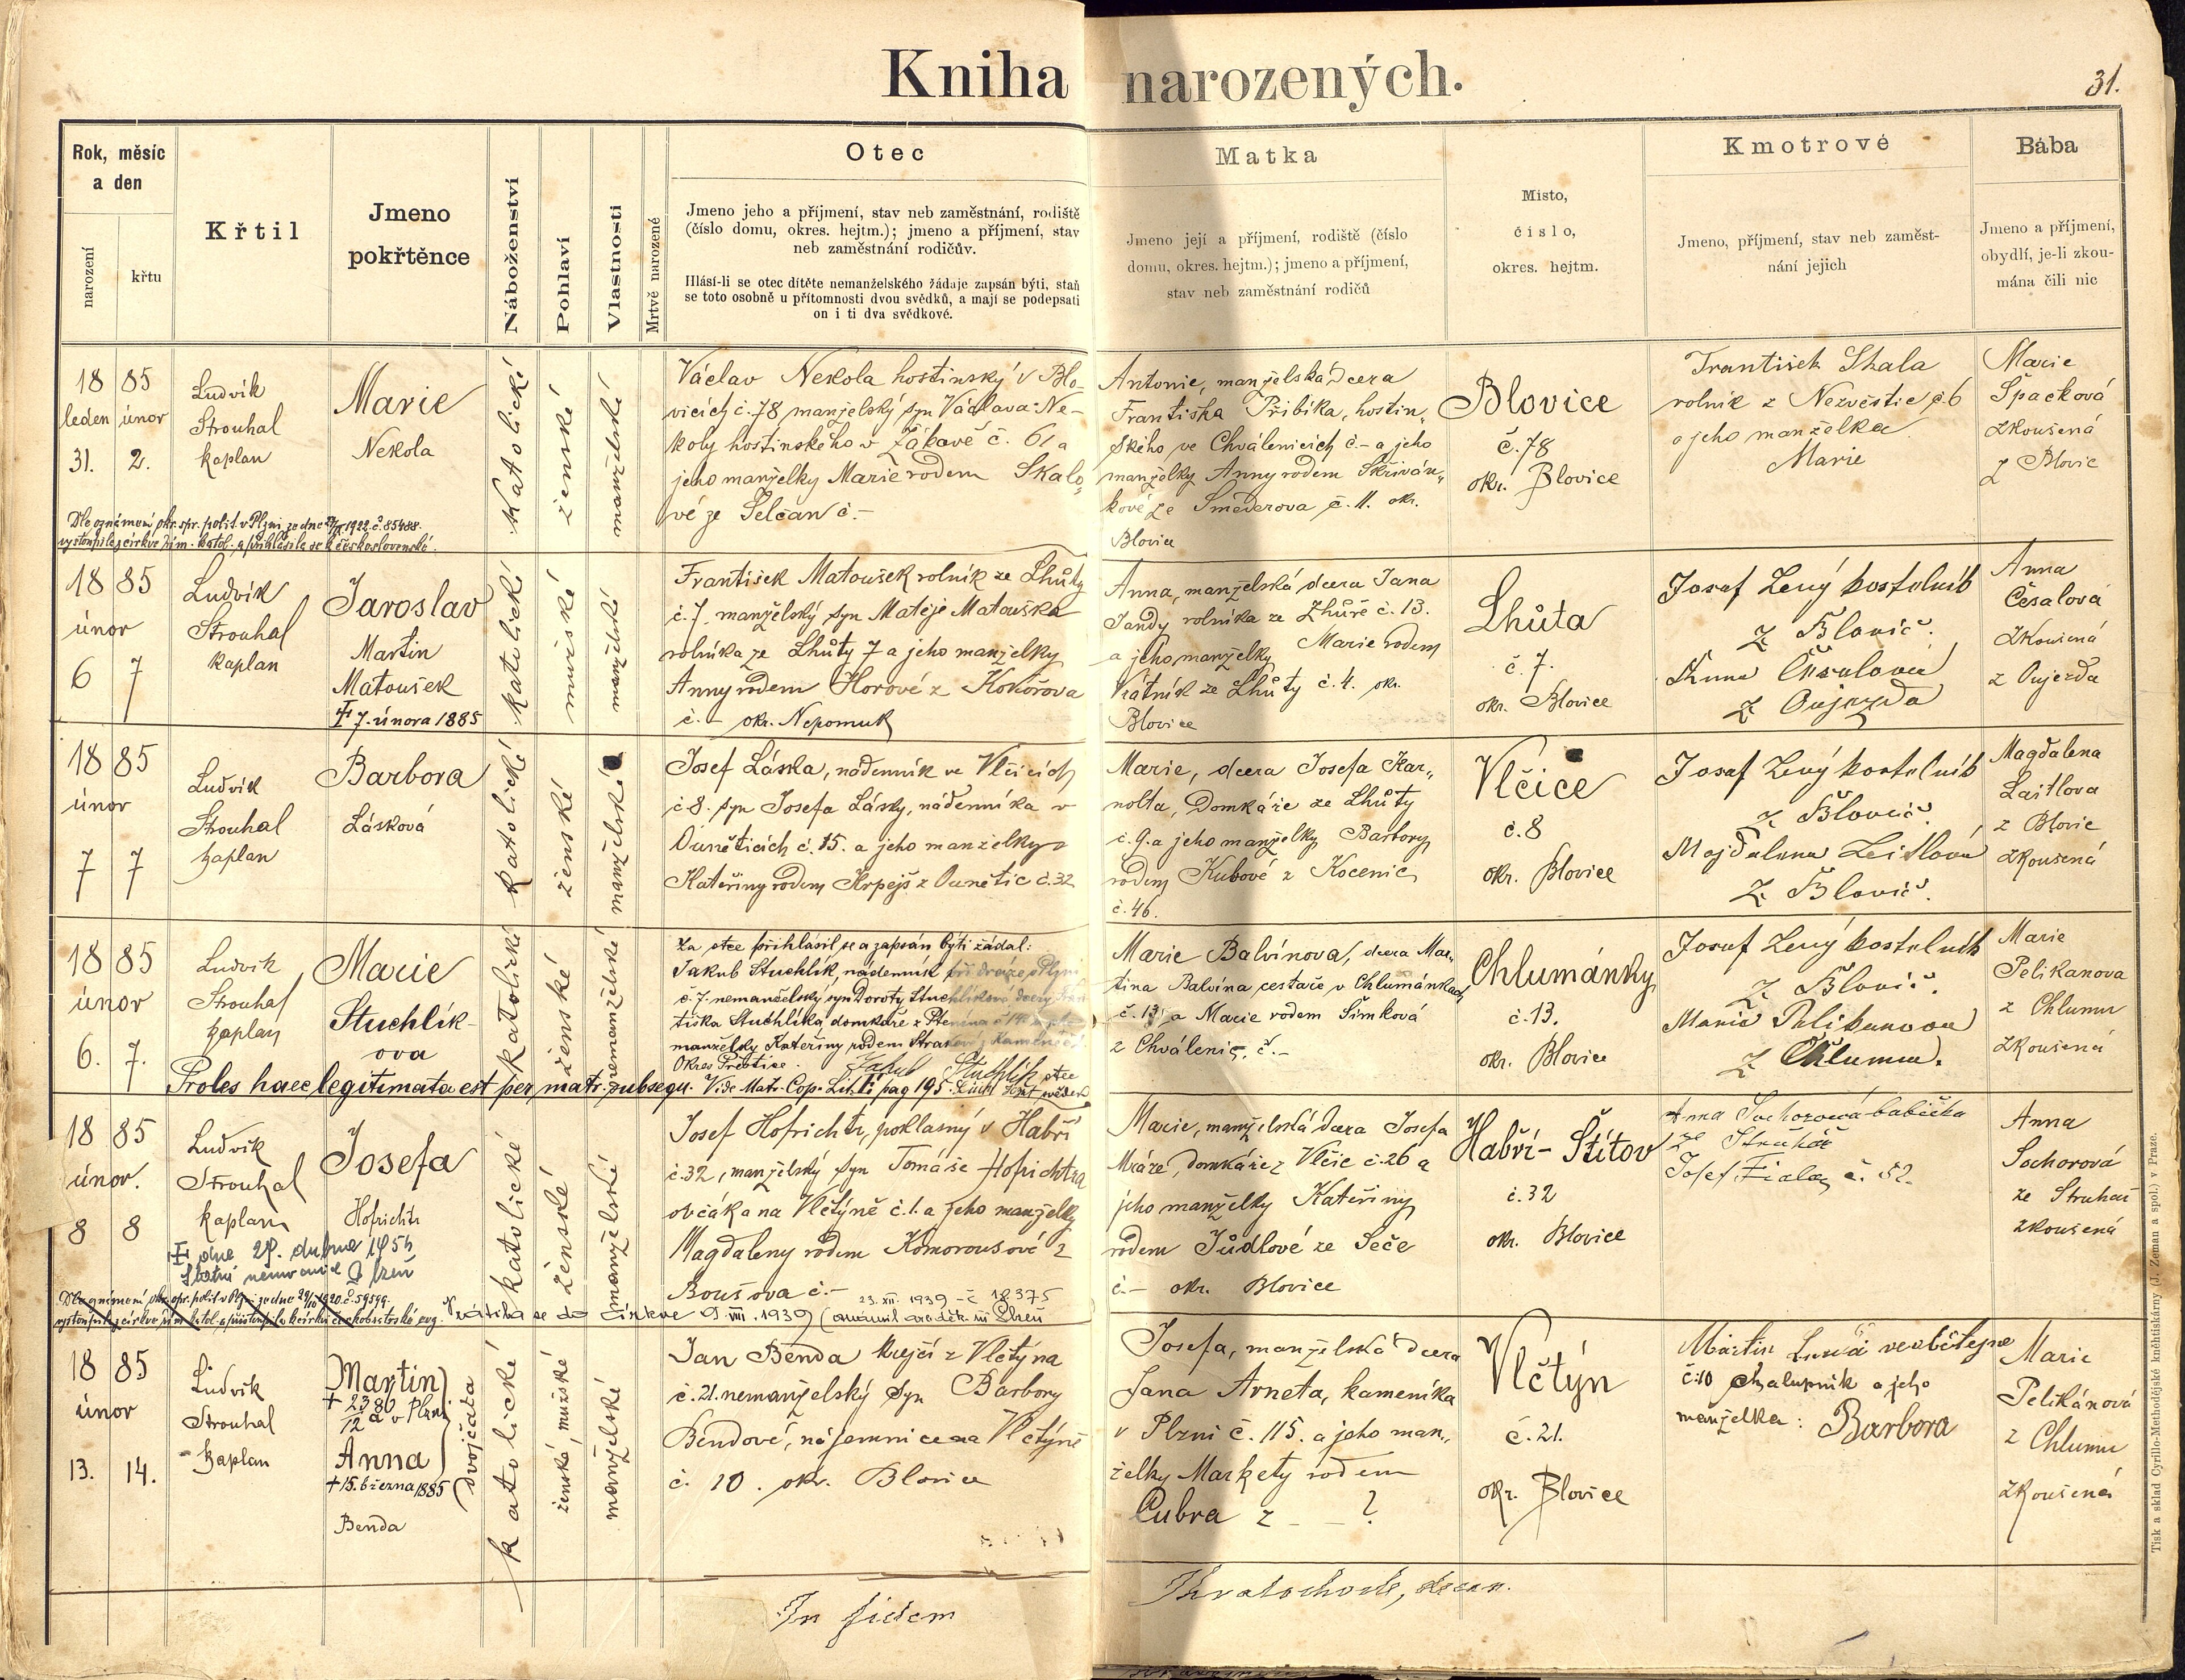 Kniha narozených.
31.
Rok, měsíc
a den
narození
křtu
Křtil
Jmeno
pokřtěnce
Náboženství
Pohlaví
Vlastnosti
Mrtvě narozené
Otec
Jmeno jeho a příjmení, stav neb zaměstnání, rodiště
(číslo domu, okres. hejtm.); jmeno a příjmení, stav
neb zaměstnání rodičův.
Hlásí-li se otec dítěte nemanželského žádaje zapsán býti, staň
se toto osobně u přítomnosti dvou svědků, a mají se podepsati
on i ti dva svědkové.
Matka
Jmeno její a příjmení, rodiště (číslo
domu, okres. hejtm.); jmeno a příjmení,
stav neb zaměstnání rodičů
Misto,
číslo,
okres. hejtm.
Kmotrové
Jmeno, příjmení, stav neb zaměst-
nání jejich
Bába
Jmeno a příjmení,
obydlí, je-li zkou-
mána čili nic
18 85
leden únor
31. 2.
Ludvík
Strouhal
kaplan
Marie
Nekola
katolické
ženské
manželské
Václav Nekola hostinský v Blo-
vicích č. 78 manželský syn Václava Ne-
koly hostinského v Žákavě č. 61 a
jeho manželky Marie rodem Skalo-
vé ze Selčan č.-
Antonie, manželská dcera
Františka Přibíka, hostin-
ského ve Chválenicích č.- a jeho
manželky Anny rodem Skřiván-
kové ze Směderova č. 11. okr.
Blovice
Blovice
č. 78
okr. Blovice
František Skala
rolník z Nezvěstic č 6
a jeho manželka
Marie
Marie
Špačková
zkoušená
z Blovic
Dle oznámení okr. spr. polit. v Plzni ze dne 1922 č. 85488.
vystoupila z církve řím. katol. a přihlásila se k československé.
18 85
únor
6 7
Ludvík
Strouhal
kaplan
Jaroslav
Martin
Matoušek
7. února 1885
katolické
mužské
manželské
František Matoušek rolník ze Lhůty
č. 7. manželský syn Matěje Matouška
rolníka ze Lhůty 7 a jeho manželky
Anny rodem Horové z Kokořova
č.- okr. Nepomuk
Anna, manželská dcera Jana
Jandy rolníka ze Lhůty č. 13.
a jeho manželky Marie rodem
ze Lhůty č. 4. okr.
Blovice
Lhůta
č. 7.
okr. Blovice
Josef Lený kostelník
z Blovic.
Anna Česalová
z Oujezda
Anna
Česalová
zkoušená
z Oujezda
18 85
únor
7 7
Ludvík
Strouhal
kaplan
Barbora
Lásková
katolické
ženské
manželské
Josef Láska, nádenník ve Vlčicích
č 8. syn Josefa Lásky, nádenníka v
Ouněticích č. 15. a jeho manželky
Kateřiny rodem Krpejš z Ounětic č. 32
Marie, dcera Josefa Kar-
nolta, Domkáře ze Lhůty
č. 9. a jeho manželky Barbory
rodem Kubové z Kocenic
č. 46.
Vlčice
č. 8
okr. Blovice
Josef Lený kostelník
z Blovic.
Majdalena Leitlová
z Blovic.
Magdalena
Laitlova
z Blovic
zkoušená
18 85
únor
6. 7.
Ludvík
Strouhal
kaplan
Marie
Stuchlík-
ova
katolické
ženské
nemanželské
Za otce přihlásil se a zapsán býti žádal:
Jakub Stuchlík, nádenník při dráze v Plzni
č. 7. nemanželský syn Doroty Stuchlíkové, dcery Fran
tiška Stuchlíka domkáře z Ptenína č 14
manželky Kateřiny rodem
Okres Přeštice. Jakub Stuchlík otce
Marie Balvínova, dcera Mar-
tina Balvína cestaře v Chlumánkách
č. 13 a Marie rodem Šimková
z Chválenic, č.-
Chlumánky
č. 13.
okr. Blovice
Josef Lený kostelník
z Blovic.
Marie Pelikanova
z Chlumu.
Marie
Pelikanova
z Chlumu
zkoušená
Proles haec legitimata est per matr. subsequ. Vide Matr. Cop. pag 195.
18 85
únor.
8 8
Ludvík
Strouhal
kaplan
Josefa
Hofrichtr
dne 28. dubna 1954
Státní nemocnice Plzeň
katolické
ženské
manželské
Josef Hofrichtr, poklasný v Habří
č. 32, manželský syn Tomáše Hofrichtra
ovčáka na Vlčtýně č. 1. a jeho manželky
Magdaleny rodem Komorousové z
Bousova č.-
Marie, manželská dcera Josefa
Mráze, domkáře z Vlčic č. 26 a
jeho manželky Kateřiny
rodem Jůdlové ze Seče
č.- okr. Blovice
Habří-Štítov
č. 32
okr. Blovice
Anna Sochorová babička
ze Struhář
Josef Fiala č. 32.
Anna
Sochorová
ze Struhař
zkoušená
Dle oznámení okr. spr. polit. v Plzni ze dne 1920. č. 59599.
Vrátila se do církve 9. VIII. 1939
23. XII. 1939 - č 18375
18 85
únor
13. 14.
Ludvík
Strouhal
kaplan
Martin
v Plzni
Anna
+ 15. března 1885
dvojčata
Benda
katolické
ženské, mužské
manželské
Jan Benda krejčí z Vlčtýna
č. 21. nemanželský syn Barbory
Bendové, nájemnice na Vlčtýně
č. 10. okr. Blovice
Josefa, manželská dcera
Jana Arneta, kameníka
v Plzni č. 115. a jeho man-
želky Markety rodem
Cubra z - - ?
Vlčtýn
č. 21.
okr. Blovice
Martin
č 10 chalupník a jeho
manželka: Barbora
Marie
Pelikánová
z Chlumu
zkoušená
In fidem
Tisk a sklad Cyrillo-Methodějské knihtiskárny (J. Zeman a spol.) v Praze.